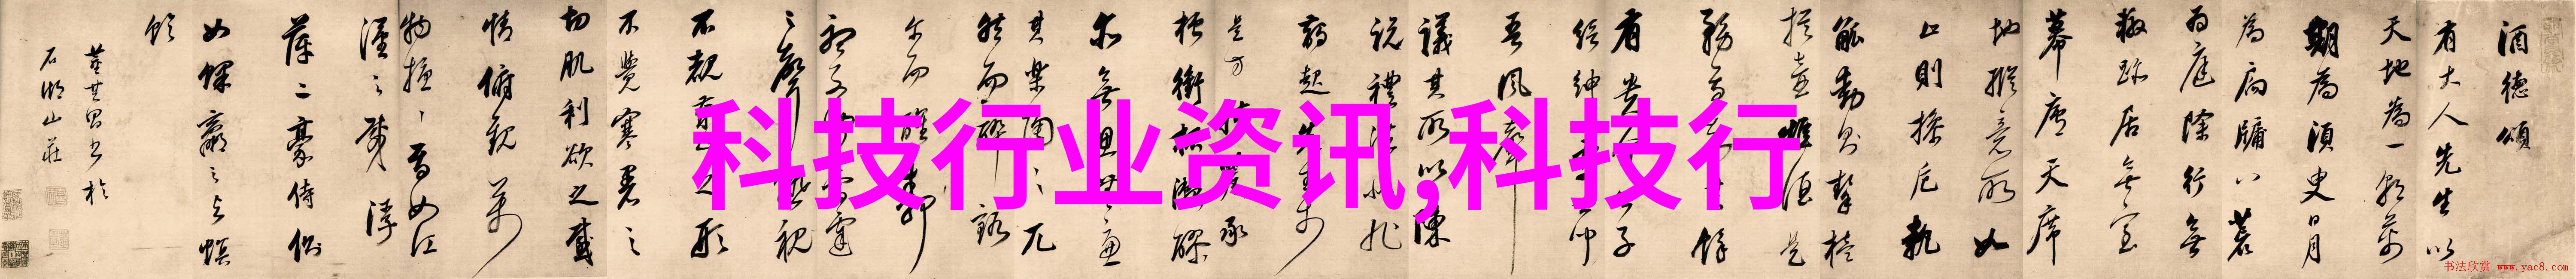 酒德頌
有大人先生以
天地為一朝萬
期為須臾日月
為扃牖八荒
為庭除行無
轍跡居無室
幕天席
地縱意所如
止則操卮執
觚動則挈榼
提壺唯酒是
務焉知其餘
有貴介公子
縉紳處士
吾風聲
議其所以
陳說禮法是非
鋒起先生於
是方
捧罌承
槽銜杯漱醪
無思無慮
其樂陶陶兀
然而醉
豁爾而醒靜
聽不聞雷霆
之聲熟視
不覩泰山之形
不覺寒暑之
切肌利欲之感
情俯觀萬
物擾擾焉如江
漢之載浮
萍二豪侍側
如蜾蠃之與螟
蛉
董其昌書於
科技行业资讯,科技行
书法欣赏 www.yac8.com